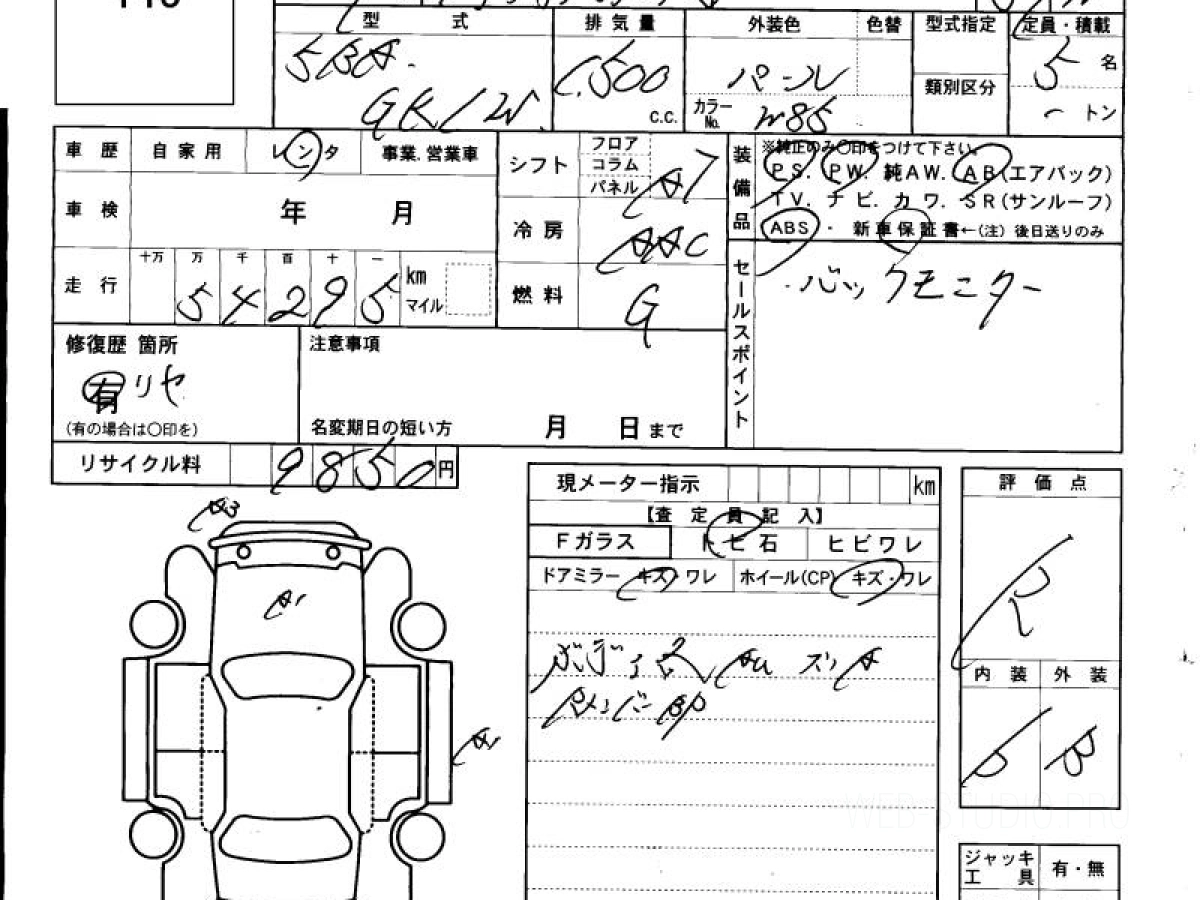 型 式 排気量 外装色 色替 型式指定 定員・積載
5BA.
GK1W
1.500 c.c.
パール
カラーNo. W85
類別区分
5 名
トン
車歴 自家用 レンタ 事業.営業車
車検 年 月
走行 十万 万 千 百 十 一
5 4 2 9 5 km マイル
シフト フロア コラム パネル A7
冷房 AAC
燃料 G
装備品 ※純正のみ〇印をつけて下さい。
PS. PW. 純AW. AB(エアバック)
TV. ナビ. カワ. SR(サンルーフ)
ABS ・ 新車保証書←(注) 後日送りのみ
セールスポイント
バックモニター
修復歴 箇所
有 リヤ
(有の場合は〇印を)
注意事項
名変期日の短い方 月 日まで
リサイクル料 9850円
A3
A1
現メーター指示 km
【査定員記入】
Fガラス トビ石 ヒビワレ
ドアミラー キズ・ワレ ホイール(CP) キズ・ワレ
評価点
R
内装 外装
B
ジャッキ 有・無
工具
WEB-STUDIO.PRO